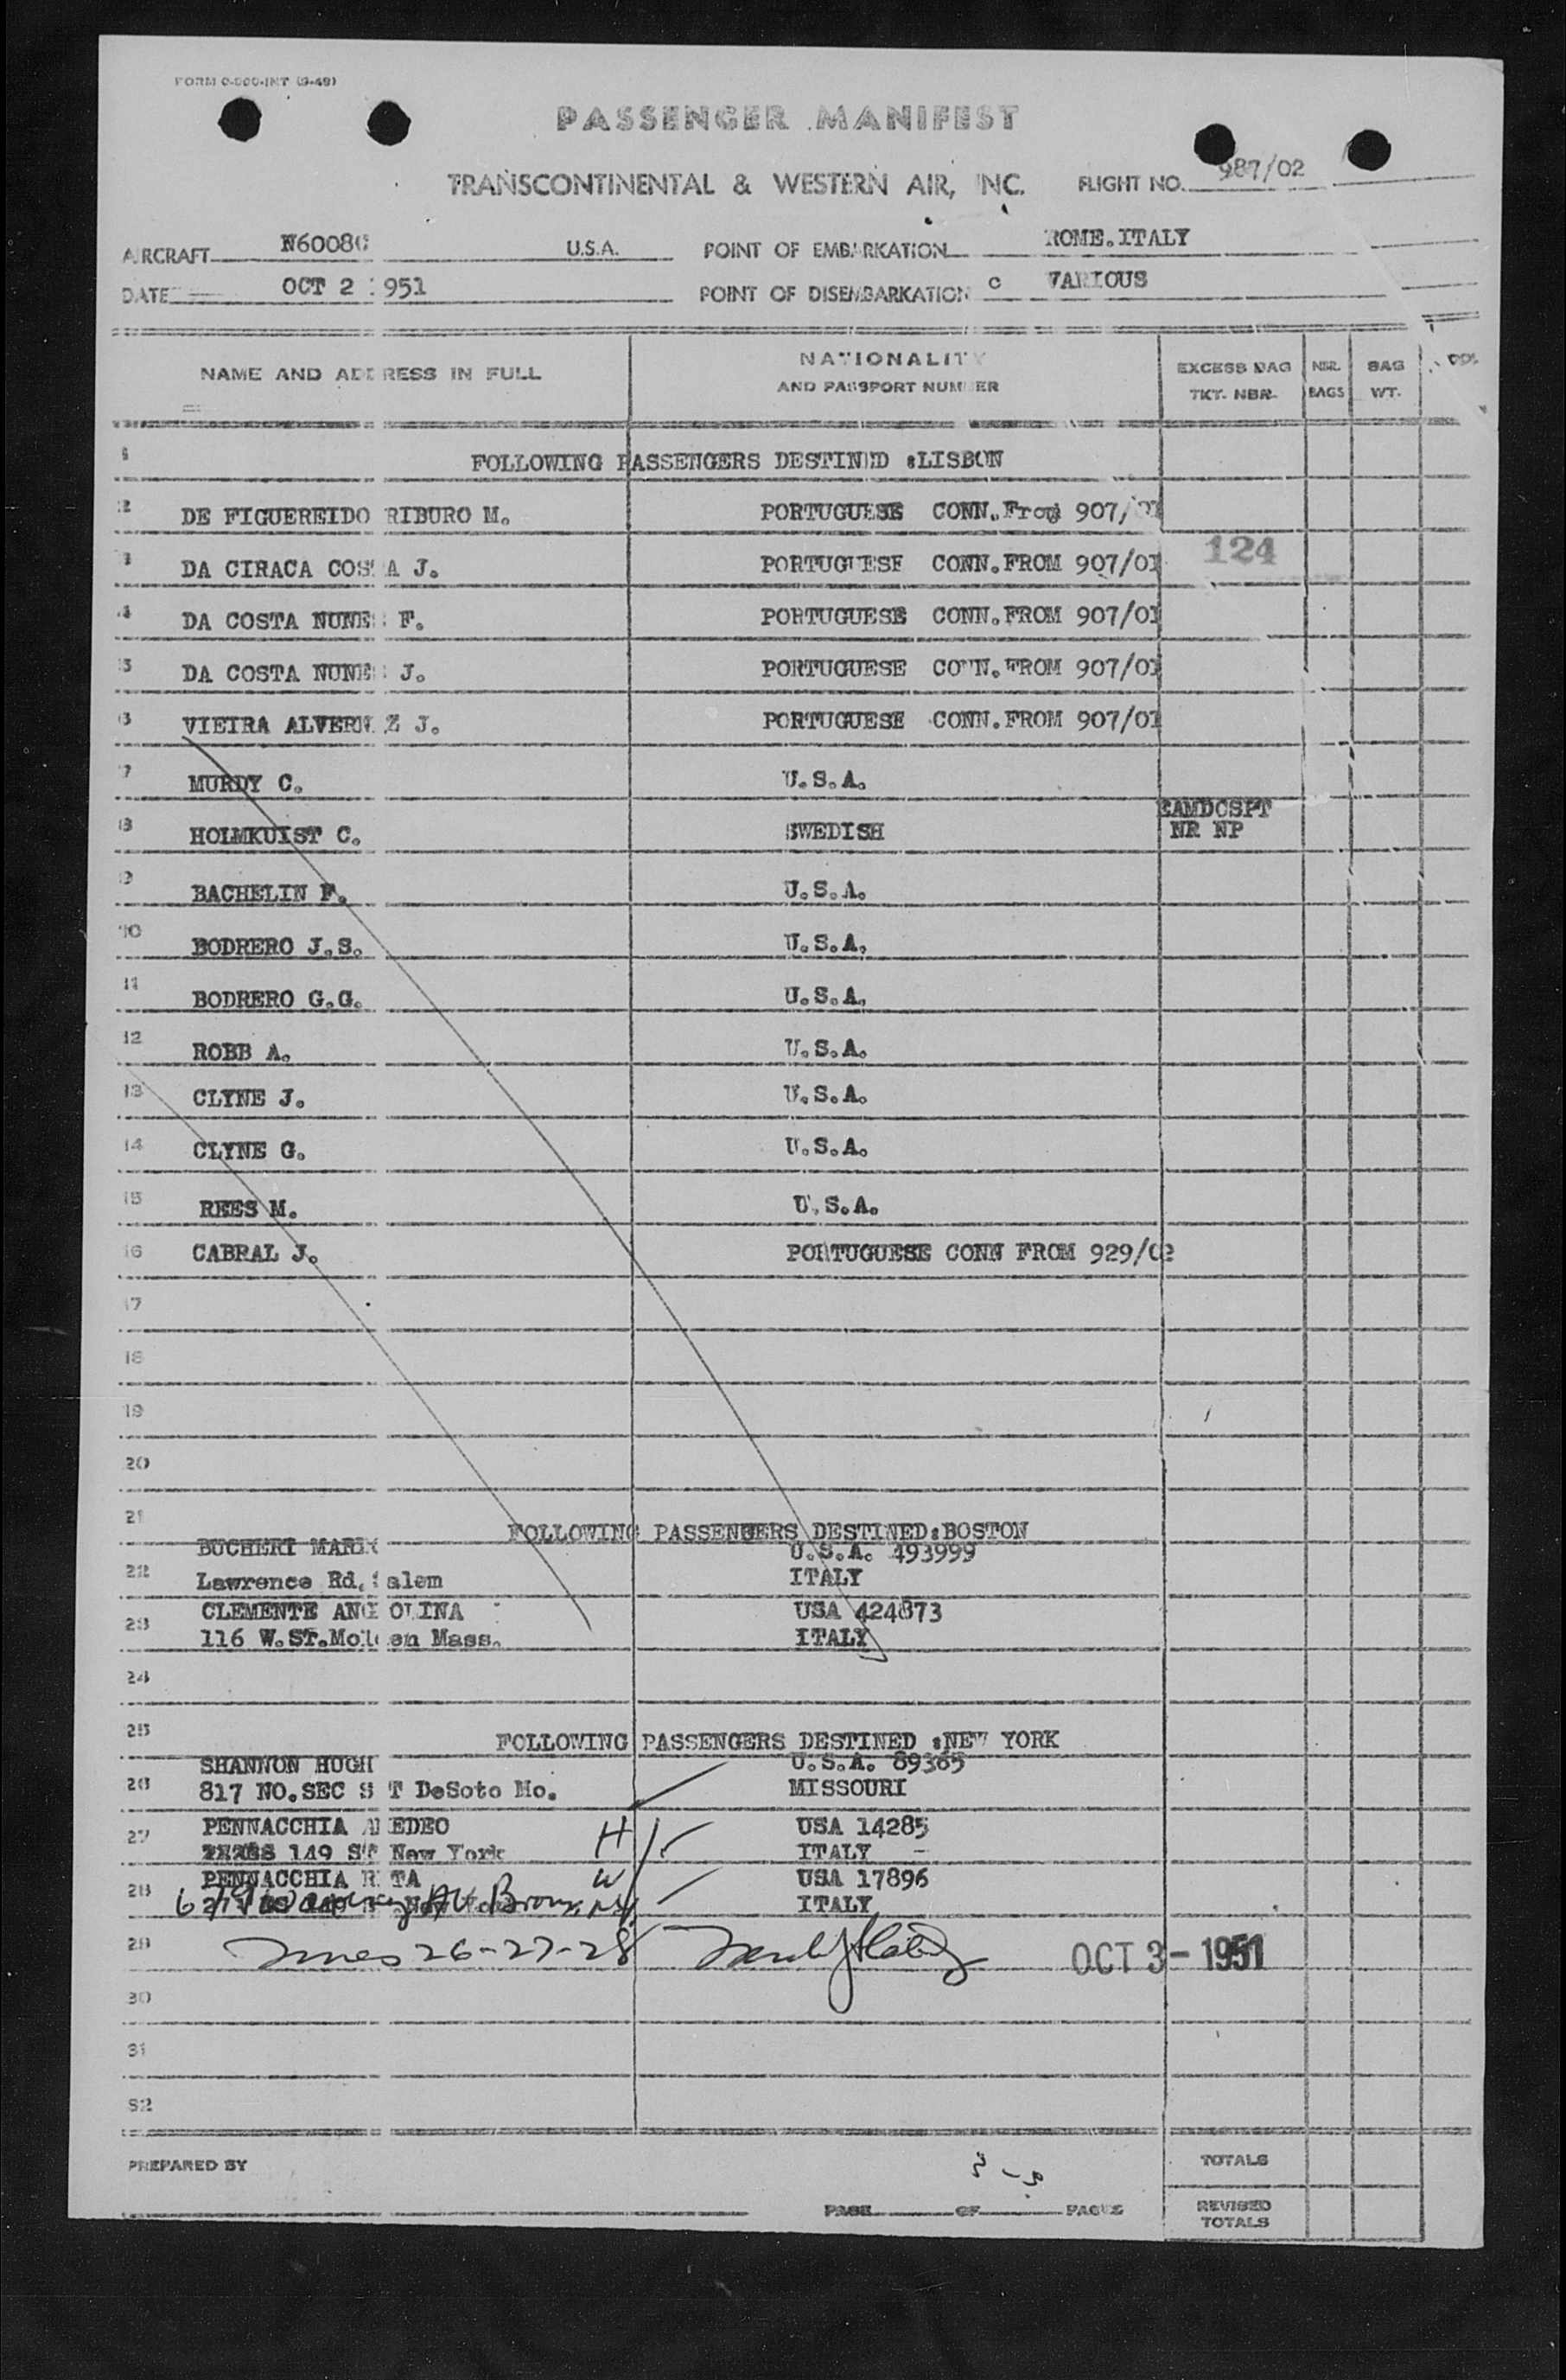 FORM O-000-INT (9-49)
PASSENGER MANIFEST
TRANSCONTINENTAL & WESTERN AIR, INC. FLIGHT NO. 987/02
AIRCRAFT N6008C U.S.A. POINT OF EMBARKATION ROME.ITALY
DATE OCT 2 1951 POINT OF DISEMBARKATION VARIOUS
NAME AND ADDRESS IN FULL NATIONALITY AND PASSPORT NUMBER EXCESS BAG TKT. NBR. NBR. BAGS BAG WT.
1 FOLLOWING PASSENGERS DESTINED :LISBON
2 DE FIGUEREIDO RIBURO M. PORTUGUESE CONN.From 907/01
124
3 DA CIRACA COSTA J. PORTUGUESE CONN.FROM 907/01
4 DA COSTA NUNES F. PORTUGUESE CONN.FROM 907/01
5 DA COSTA NUNES J. PORTUGUESE CONN.FROM 907/01
6 VIEIRA ALVERNAZ J. PORTUGUESE CONN.FROM 907/01
7 MURDY C. U.S.A.
8 HOLMKUIST C. SWEDISH EAMDCSPT
NR NP
9 BACHELIN F. U.S.A.
10 BODRERO J.S. U.S.A.
11 BODRERO G.G. U.S.A.
12 ROBB A. U.S.A.
13 CLYNE J. U.S.A.
14 CLYNE G. U.S.A.
15 REES M. U.S.A.
16 CABRAL J. PORTUGUESE CONN FROM 929/02
17
18
19
20
21 FOLLOWING PASSENGERS DESTINED:BOSTON
BUCHERI MARIO U.S.A. 493999
22 Lawrence Rd. Salem ITALY
CLEMENTE ANGIOLINA USA 424873
23 116 W.ST.Molden Mass. ITALY
24
25 FOLLOWING PASSENGERS DESTINED :NEW YORK
SHANNON HUGH U.S.A. 89365
26 817 NO.SEC ST DeSoto Mo. MISSOURI
27 PENNACCHIA AMEDEO H USA 14285
149 ST New York ITALY
28 PENNACCHIA RITA W USA 17896
Av Bronx NY ITALY
29 26-27-28 OCT 3 - 1951
30
31
32
PREPARED BY TOTALS
3 - 3
PAGE OF PAGES REVISED TOTALS